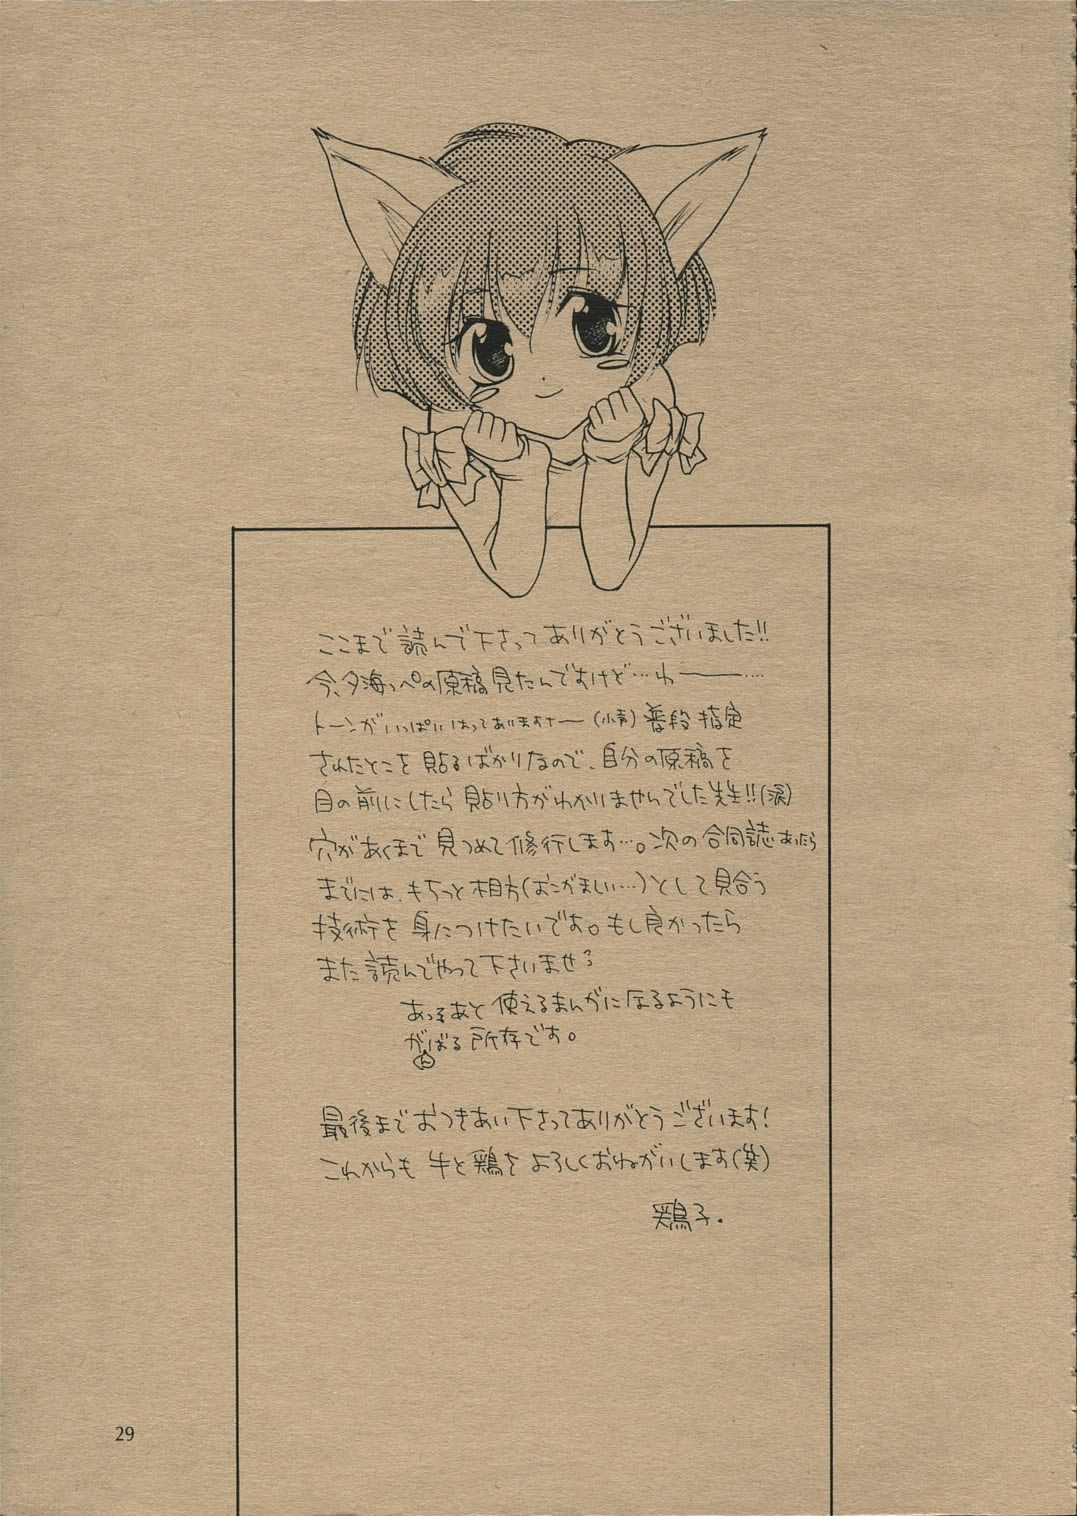 ここまで読んで下さってありがとうございました!!
今、夕海っぺの原稿見たんですけど…わ――…
トーンがいっぱいはってありますナー(小声)普段指定
されたとこを貼るばかりなので、自分の原稿を
目の前にしたら貼り方がわかりませんでした先生!!(涙)
穴があくまで見つめて修行します…。次の合同誌あったら
までには、もちっと相方(おこがましい…)として見合う
技術を身につけたいです。もし良かったら
また読んでやって下さいませ?
あっあと使えるまんがになるようにも
がんばる所存です。
最後までおつきあい下さってありがとうございます!
これからも牛と鶏をよろしくおねがいします(笑)
鶏子.
29